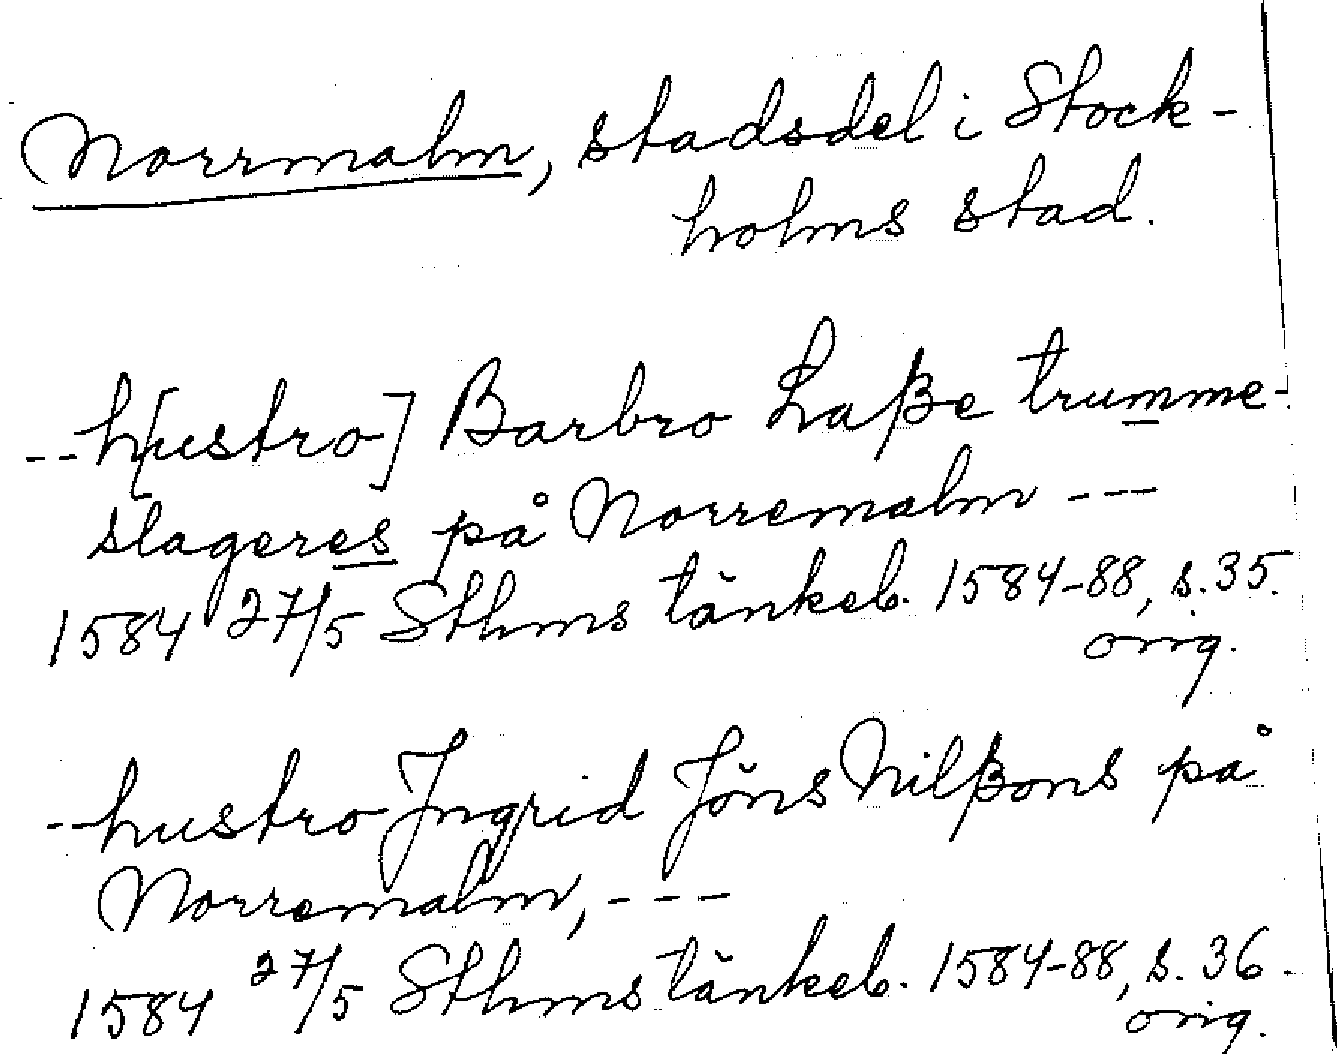 Norrmalm, stadsdel i Stock-
holms stad.
--h[ustro] Barbro Laße trumme-
slageres på Norremalm ---
1584 27/5 Sthms tänkeb. 1584-88, s. 35.
orig.
--hustro Jngrid Jöns Nilßons på
Norremalm, ---
1584 27/5 Sthms tänkeb. 1584-88, s. 36.
orig.